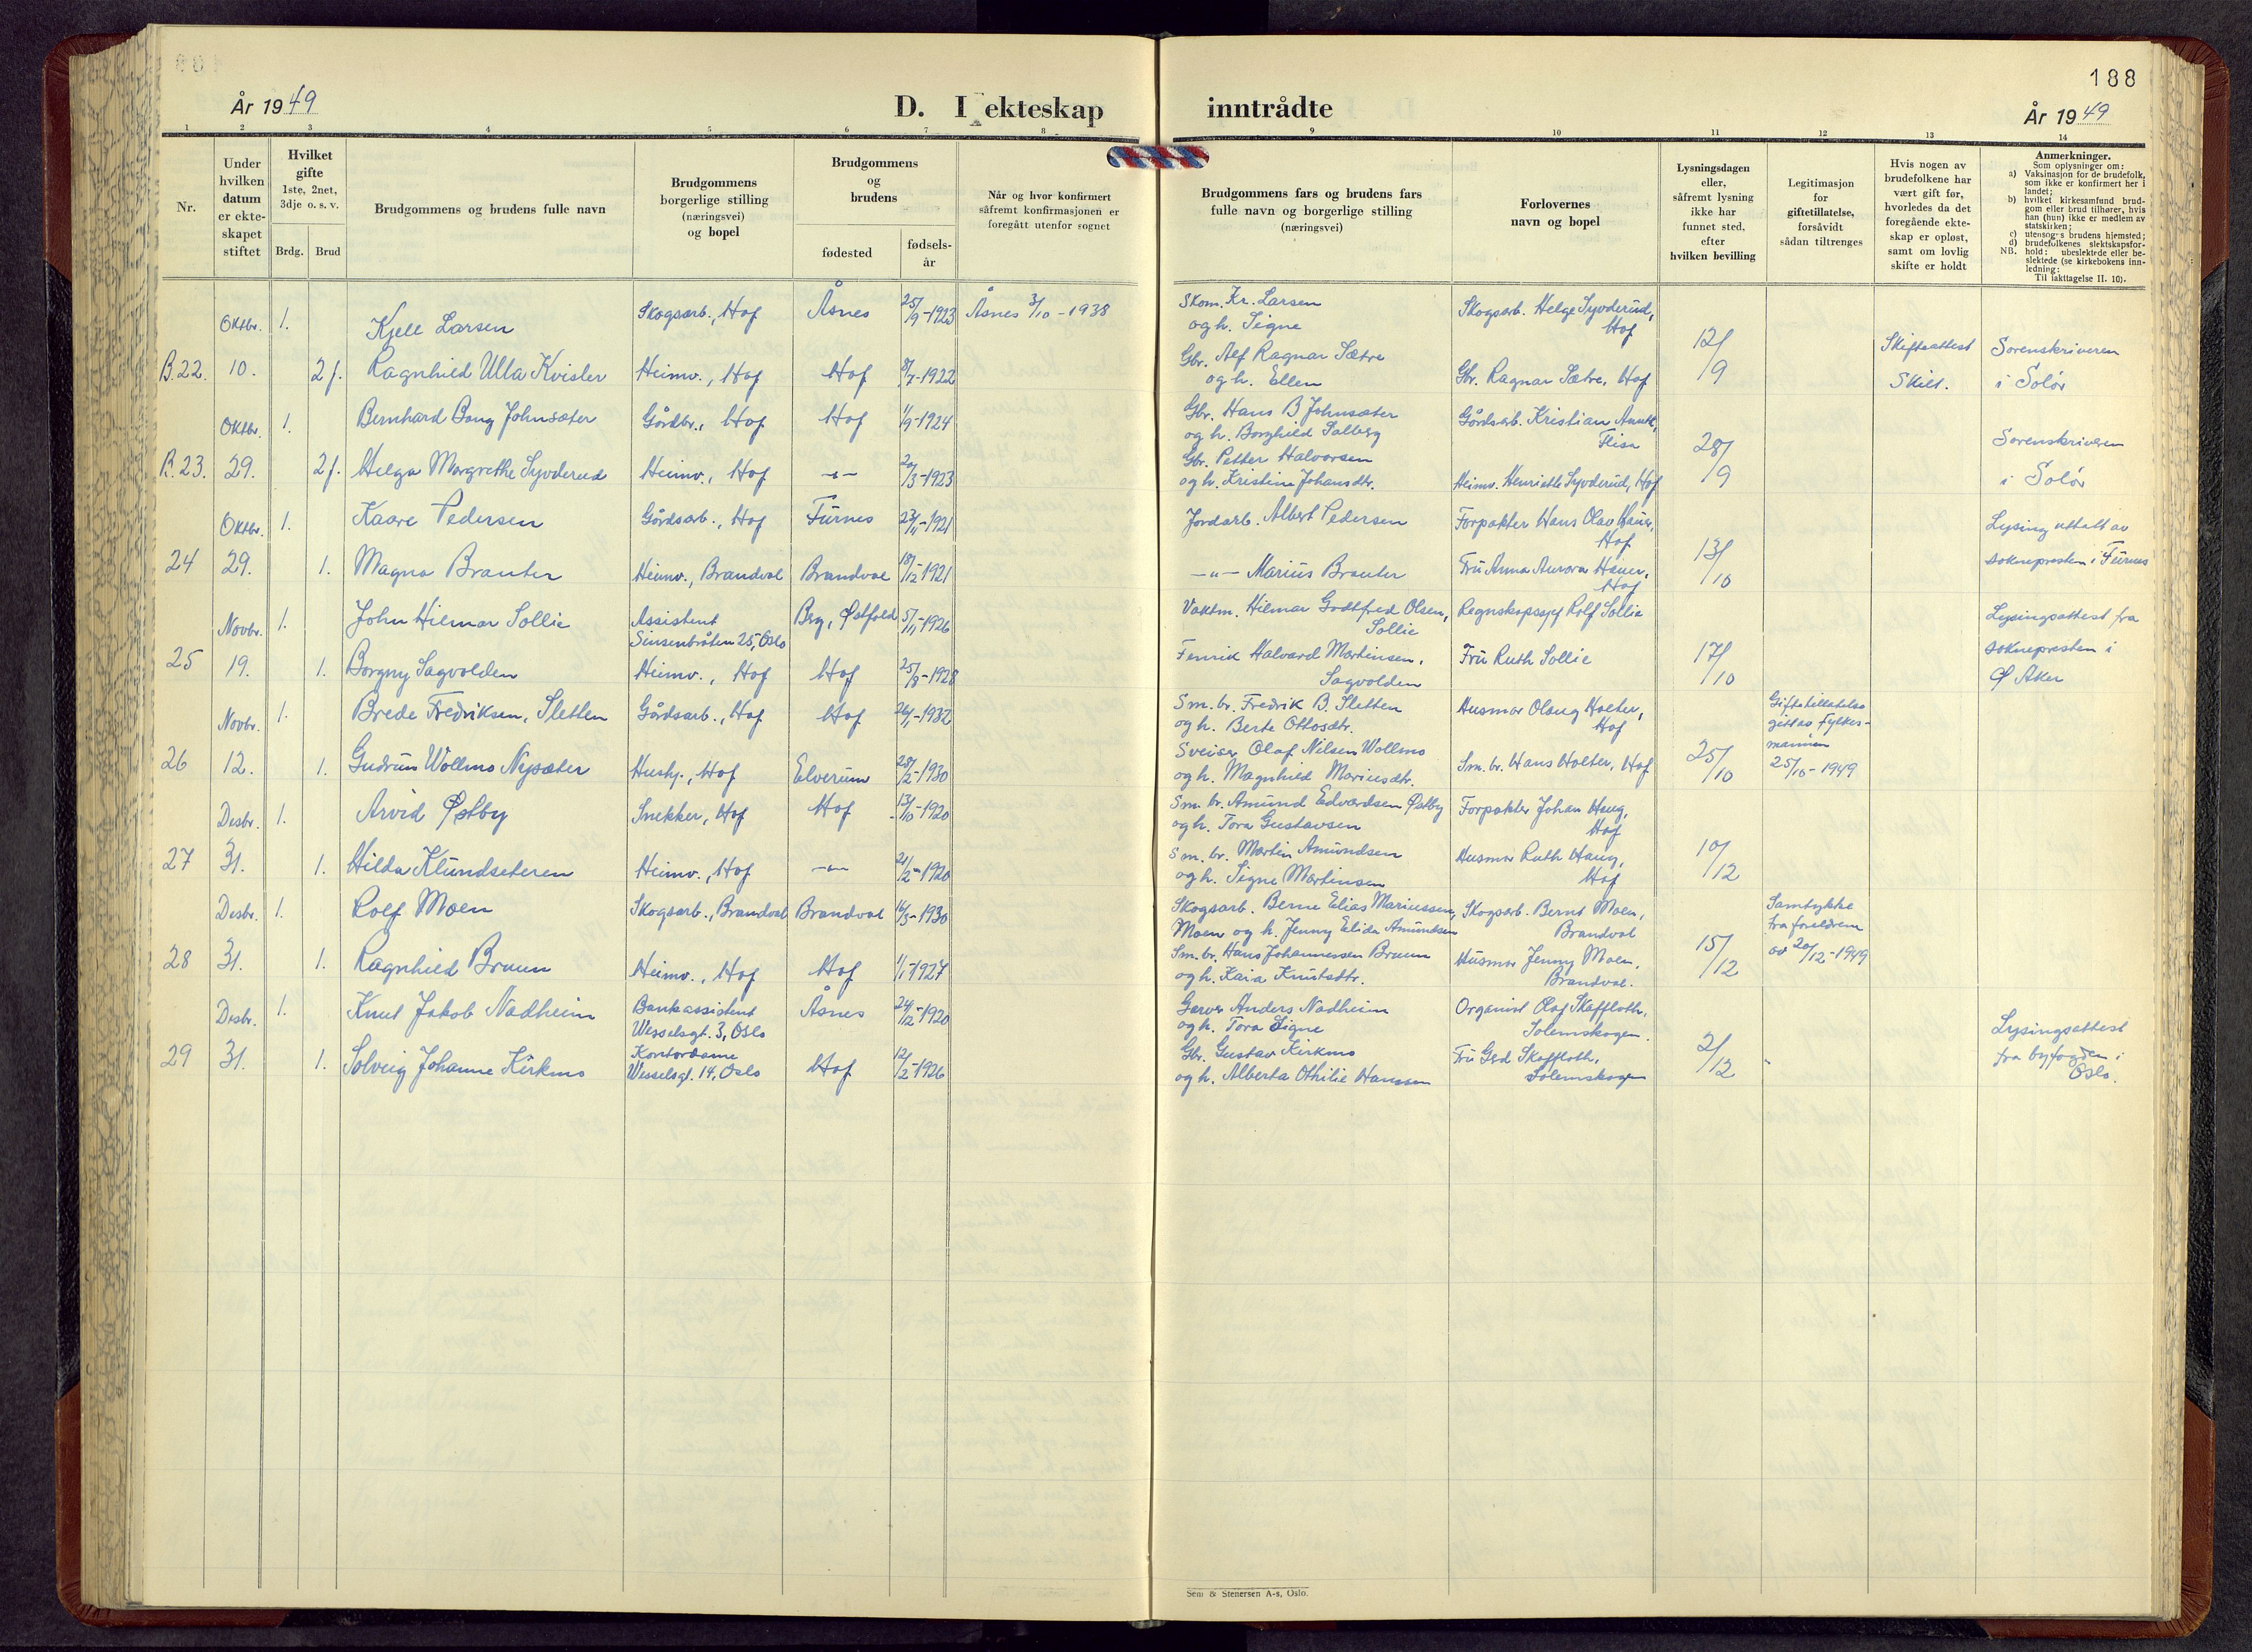 188
År 1949
D. I ekteskap
inntrådte
År 1949
1 2 3 4 5 6 7 8 9 10 11 12 13 14
Nr.
Under hvilken datum er ekteskapet stiftet
Hvilket gifte 1ste, 2net, 3dje o. s. v.
Brdg. Brud
Brudgommens og brudens fulle navn
Brudgommens borgerlige stilling (næringsvei) og bopel
Brudgommens og brudens
fødested
fødselsår
Når og hvor konfirmert såfremt konfirmasjonen er foregått utenfor sognet
Brudgommens fars og brudens fars fulle navn og borgerlige stilling (næringsvei)
Forlovernes navn og bopel
Lysningsdagen eller, såfremt lysning ikke har funnet sted, efter hvilken bevilling
Legitimasjon for giftetillatelse, forsåvidt sådan tiltrenges
Hvis nogen av brudefolkene har vært gift før, hvorledes da det foregående ekteskap er opløst, samt om lovlig skifte er holdt
Anmerkninger.
Som oplysninger om:
a) Vaksinasjon for de brudefolk, som ikke er konfirmert her i landet;
b) hvilket kirkesamfund brudgom eller brud tilhører, hvis han (hun) ikke er medlem av statskirken;
c) utensogns brudens hjemsted;
d) brudefolkenes slektskapsforhold: ubeslektede eller beslektede (se kirkebokens innledning:
NB.
Til iakttagelse II. 10).
Oktbr. 1. Kjell Larsen Skogsarb., Hof Åsnes 25/9-1923 Åsnes 3/10-1938 Skom. Kr. Larsen og h. Signe Skogsarb. Helge Syvderud, Hof
B.22. 10. 2 f. Ragnhild Ulla Kvisler Heimv., Hof Hof 8/7-1922 Gbr. Alf Ragnar Sætre og h. Ellen Gbr. Ragnar Sætre, Hof 12/9 Skifteattest Skilt. Sorenskriveren i Solør
Oktbr. 1. Bernhard Bong Johnsæter Gårdbr., Hof Hof 1/9-1924 Gbr. Hans B Johnsæter og h. Borghild Salberg Gårdsarb. Kristian Flisa
B.23. 29. 2 f. Helga Margrethe Syvderud Heimv., Hof -"- /3-1923 Gbr. Petter Halvorsen og h. Kristine Johansdtr. Heimv. Henriette Syvderud, Hof 28/9 Sorenskriveren i Solør
Oktbr. 1. Kaare Pedersen Gårdsarb., Hof Furnes 23/11-1921 Jordarb. Albert Pedersen Forpakter Hans Olav Hauer, Hof
24 29. 1. Magna Brauter Heimv., Brandval Brandval 18/12-1921 -"- Marius Brauter Fru Anna Aurora Hauer, Hof 13/10 Lysing uttatt av soknepresten i Furnes
Novbr. 1. John Hilmar Sollie Assistent Sinsenbråten 25, Oslo Berg, Østfold 5/11-1926 Vaktm. Hilmar Godtfred Olsen, Sollie Regnskapssjef Rolf Sollie
25 19. 1. Borgny Sagvolden Heimv., Hof Hof 25/8-1928 Fenrik Halvard Martinsen, Sagvolden Fru Ruth Sollie 17/10 Lysingsattest fra soknepresten i Ø Aker
Novbr. 1. Brede Fredriksen, Sletten Gårdsarb., Hof Hof 26/1-1932 Sm. br. Fredrik B. Sletten og h. Berte Ottosdtr. Husmor Olaug Holter, Hof
26 12. 1. Gudrun Wollmo Nysæter Hushj., Hof Elverum 28/2-1930 Sveiser Olaf Nilsen Wollmo og h. Magnhild Mariusdtr. Sm. br. Hans Holter, Hof 25/10 Giftetillatelse gitt av Fylkesmannen 25/10-1949
Desbr. 1. Arvid Østby Snekker, Hof Hof 13/10-1920 Sm. br. Amund Edvardsen Østby og h. Tora Gustavsen Forpakter Johan Haug, Hof
27 31. 1. Hilda Klundseteren Heimv., Hof -"- 21/2-1920 Sm. br. Martin Amundsen og h. Signe Martinsen Husmor Ruth Haug, Hof 10/12
Desbr. 1. Rolf Moen Skogsarb., Brandval Brandval 16/3-1930 Skogsarb. Berne Elias Mariussen, Moen og h. Jenny Elida Amundsen Skogsarb. Bernt Moen, Brandval
28 31. 1. Ragnhild Bruun Heimv., Hof Hof 1/1-1927 Sm. br. Hans Johannessen Bruun og h. Kaia Knutsdtr. Husmor Jenny Moen, Brandval. 15/12 Samtykke fra foreldrene av 20/12-1949
Desbr. 1. Knut Jakob Nadheim Bankassistent Wesselsgt. 3, Oslo Åsnes 24/12-1920 Garver Anders Nadheim og h. Tora Signe Organist Olaf Skaffloth, Solemskogen.
29 31. 1. Solveig Johanne Kirkmo Kontordame Wesselsgt. 14, Oslo Hof 12/2-1926 Gbr. Gustav Kirkmo og h. Alberta Othilie Hanssen Fru Ged Skaffloth, Solemskogen 2/12 Lysingsattest fra byfogden i Oslo.
Sem & Stenersen A-s, Oslo.